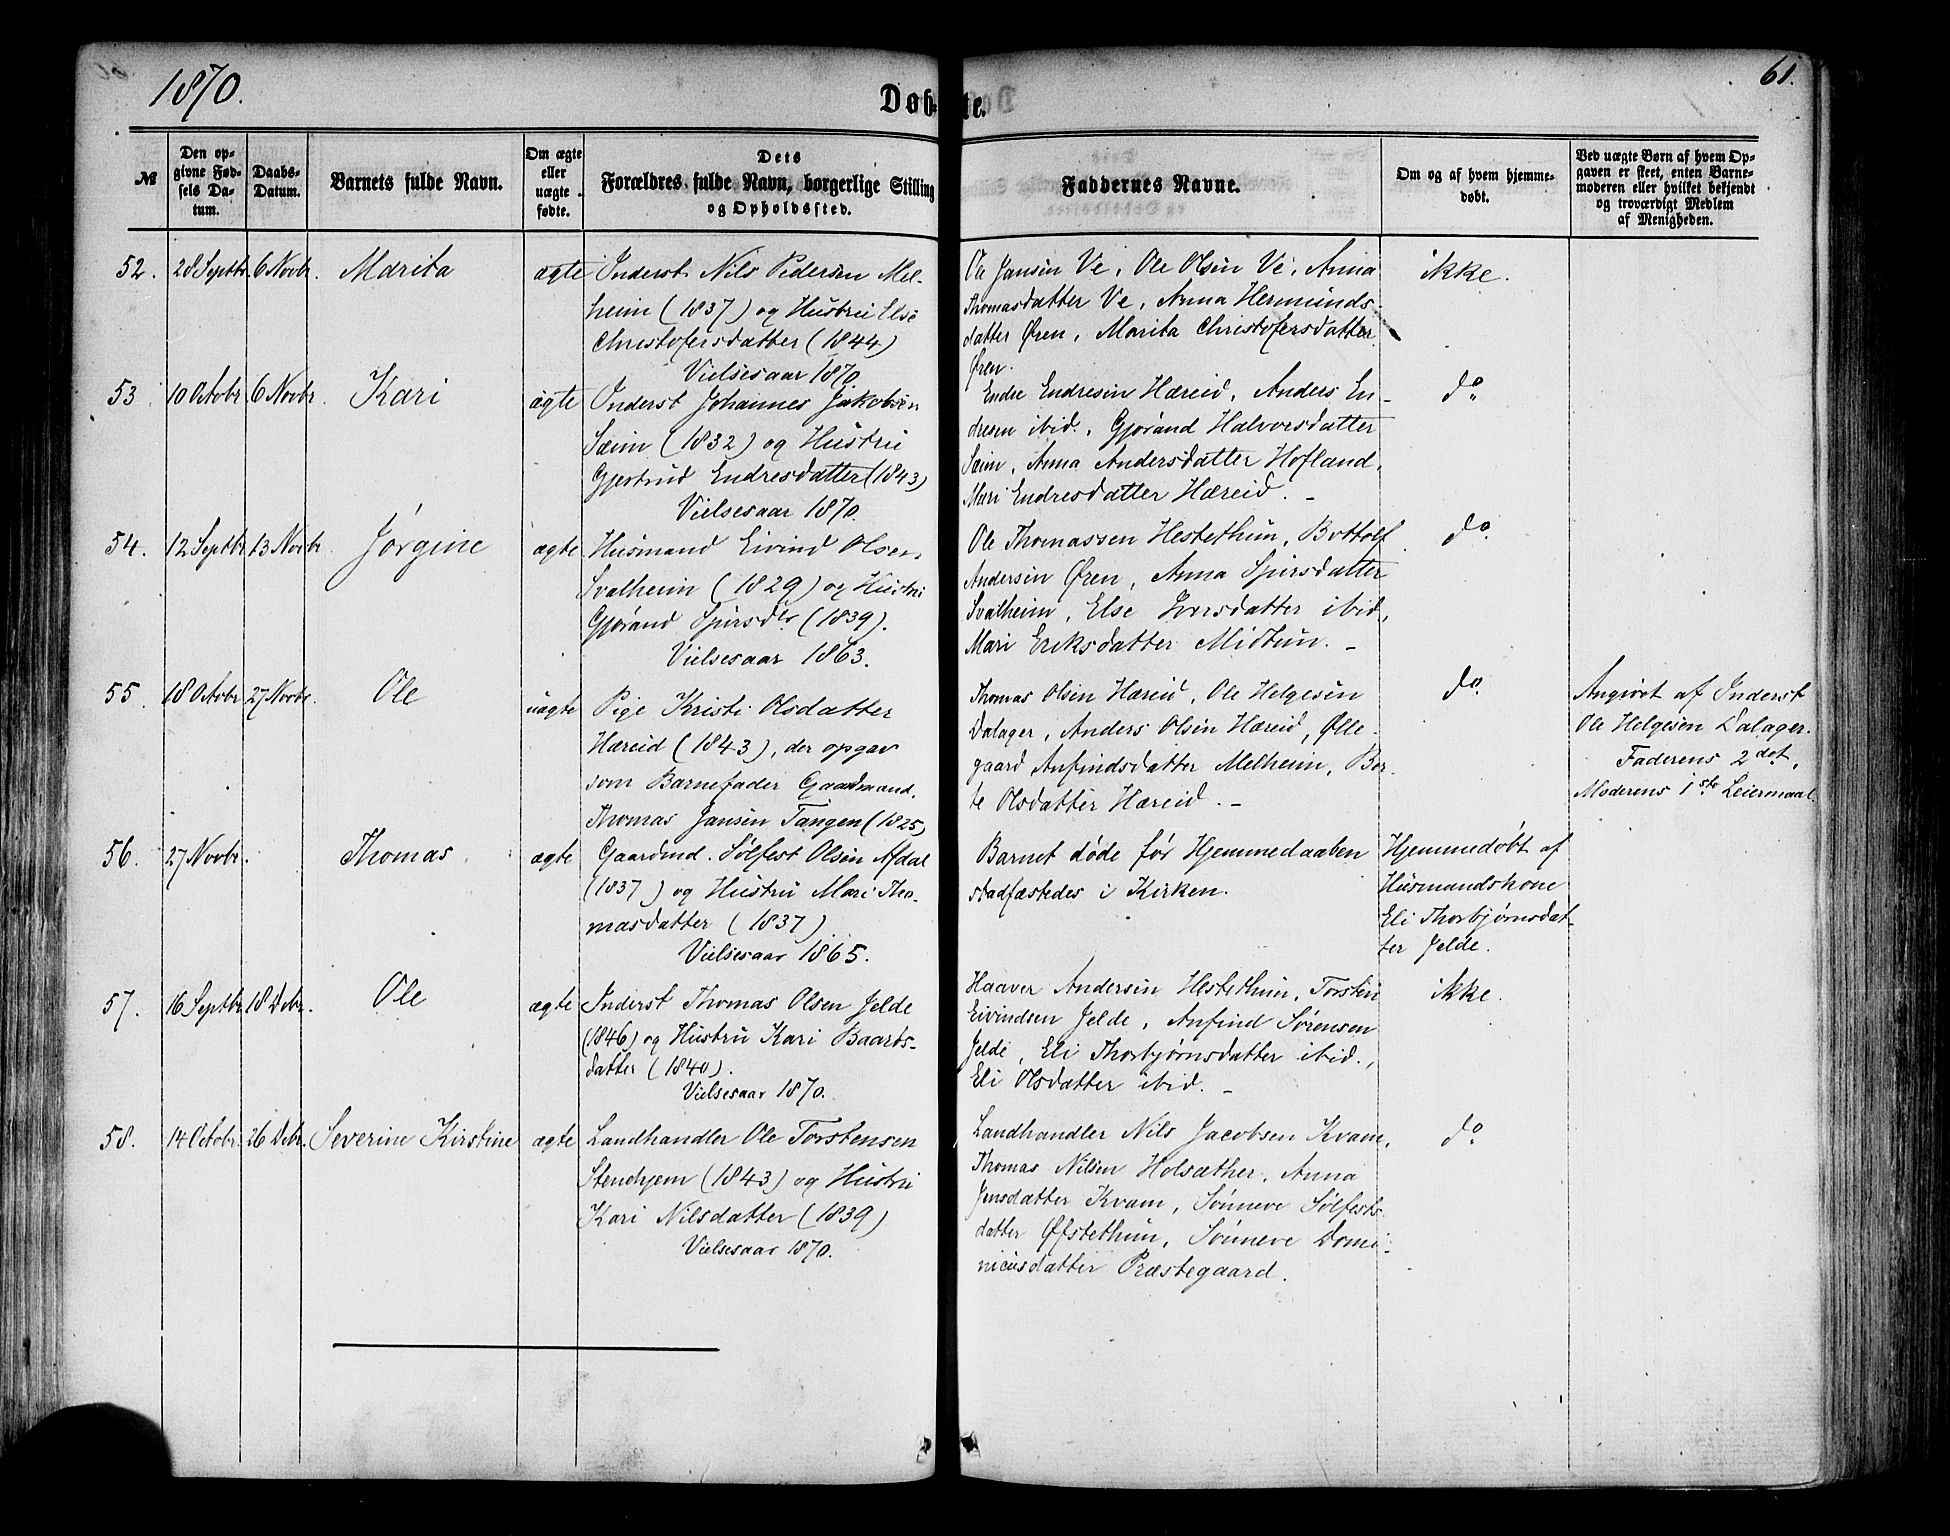 1870.
Døbte.
61.
№
Den opgivne Fødsels Datum.
Daabs-Datum.
Barnets fulde Navn.
Om ægte eller uægte fødte.
Dets Forældres fulde Navn, borgerlige Stilling og Opholdssted.
Faddernes Navne.
Om og af hvem hjemmedøbt.
Ved uægte Børn af hvem Opgaven er skeet, enten Barnemoderen eller hvilket bekjendt og troværdigt Medlem af Menigheden.
52. 28 Septbr. 6 Novbr. Marita ægte
Inderst Nils Pedersen Mel-
heim (1837) og Hustru Else
Christofersdatter (1844)
Vielsesaar 1870.
Ole Jansen Ve, Ole Olsen Ve, Anna
Thomasdatter Ve, Anna Hermunds-
datter Øren, Marita Christofersdatter
Øren.
ikke.
53 10 Octobr 6 Novbr. Kari ægte
Inderst Johannes Jakobsen
Sæim (1832) og Hustru
Gjertrud Endresdatter (1843)
Vielsesaar 1870.
Endre Endresen Hæreid, Anders En-
dresen ibid., Gjørand Halvorsdatter
Sæim, Anna Andersdatter Hofland,
Mari Endresdatter Hæreid. -
do
54. 12 Septbr. 13 Novbr. Jørgine ægte
Husmand Eivind Olsen
Svalheim (1829) og Hustru
Gjørand Spirsdtr (1839).
Vielsesaar 1863.
Ole Thomassen Hestethun, Bottolf
Andersen Øren, Anna Spirsdatter
Svalheim, Else Iversdatter ibid.,
Mari Eriksdatter Midtun. -
do.
55. 18 Octobr. 27 Novbr. Ole uægte
Pige Kristi Olsdatter
Hæreid (1843), der opgav
som Barnefader Gaardmand.
Thomas Jansen Tangen (1825)
Thomas Olsen Hæreid, Ole Helgesen
Dalager, Anders Olsen Hæreid, Olle-
gaard Anfindsdatter Melheim, Ber-
te Olsdatter Hæreid. -
do.
Angivet af Inderst
Ole Helgesen Dalager.
Faderens 2det,
Moderens 1ste Leiermaal.
56. 27 Novbr. Thomas ægte
Gaardmd. Sølfest Olsen Afdal
(1837) og Hustru Mari Tho-
masdatter (1837)
Vielsesaar 1865.
Barnet døde før Hjemmedaaben
stadfæstedes i Kirken.
Hjemmedøbt af
Husmandskone
Eli Thorbjørnsdat-
ter Jelde.
57. 16 Septbr. 18 Debr. Ole ægte
Inderst Thomas Olsen Jelde
(1846) og Hustru Kari Baards-
datter (1840).
Vielsesaar 1870.
Haaver Andersen Hestethun, Torsten
Eivindsen Jelde, Anfind Sørensen
Jelde, Eli Thorbjørnsdatter ibid.,
Eli Olsdatter ibid. -
ikke.
58. 14 Octobr. 26 Debr. Severine Kirstine ægte
Landhandler Ole Torstensen
Stenehjem (1843) og Hustru
Kari Nilsdatter (1839)
Vielsesaar 1870.
Landhandler Nils Jacobsen Kvam,
Thomas Nilsen Holsæther, Anna
Jensdatter Kvam, Sønneve Sølfests-
datter Øfstethun, Sønneve Domi-
nicusdatter Præstegaard.
do